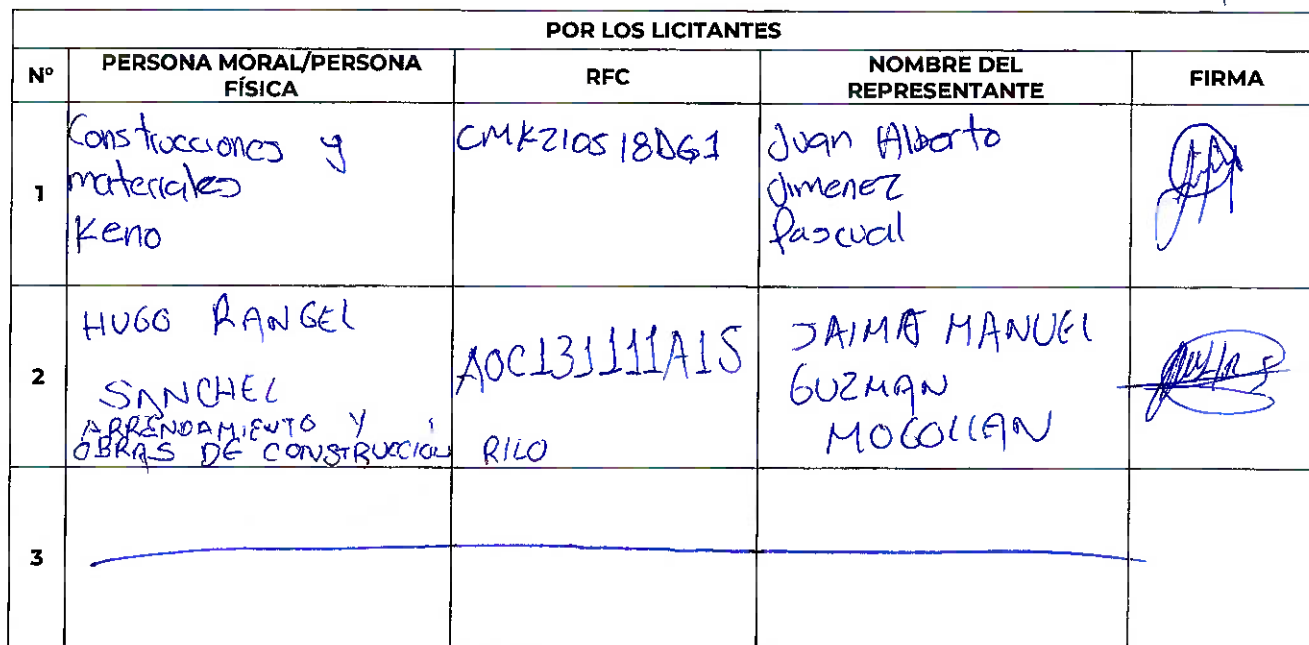 POR LOS LICITANTES
Nº PERSONA MORAL/PERSONA FÍSICA RFC NOMBRE DEL REPRESENTANTE FIRMA
1
Construcciones y
materiales
Keno
CMK210518DG1
Juan Alberto
Jimenez
Pascual
2
HUGO RANGEL
SANCHEZ
ARRENDAMIENTO Y
OBRAS DE CONSTRUCCIÓN RILO
AOC131111A15
JAIME MANUEL
GUZMAN
MOGOLLAN
3